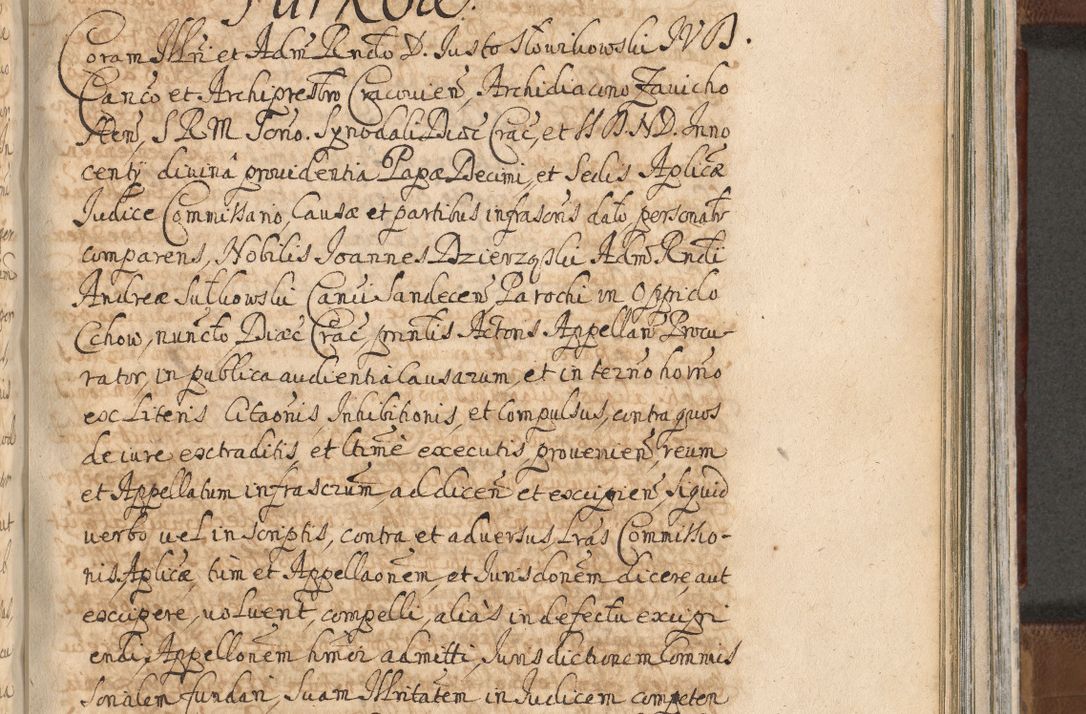 Coram Illri et Adm Rndo D. Justo Słowikowski JVD.
Canco et Archiprestro Cracovien, Archidiacono Zavicho
sten, S R M Scrio. Synodali Diæc Crac, et SS D. N D. Inno
centij divinâ providentia Papæ Decimi, et Sedis Aplicæ
Judice Commissario, Causæ et partibus infrascris dato, personalr
comparens, Nobilis Joannes Dzierzgski Adm Rndi
Andreæ Sułkowski Canci Sandecen Parochi in Oppido
Cchow, nuncto Diæc Crac, prntis Actoris Appellan Procu-
rator, in publica audientia Causarum, et in termo horno
ex Literis Citaonis Inhibitionis, et Compulsus, contra quos
de iure extraditis, et ltimè executis, provenien, reum
et Appellatum infrascrum, ad dicen et excipien, siquid
verbo vel in scriptis, contra et adversus Lras Commissio-
nis Aplicæ, tùm et Appellaonem, et Jurisdonem dicere, aut
excipere, voluerit, compelli, aliàs in defectu excipi
endi, Appellonem hmoi admitti, Jurisdictionem Commis
sorialem fundari, Suam Illritatem in Judicem competen